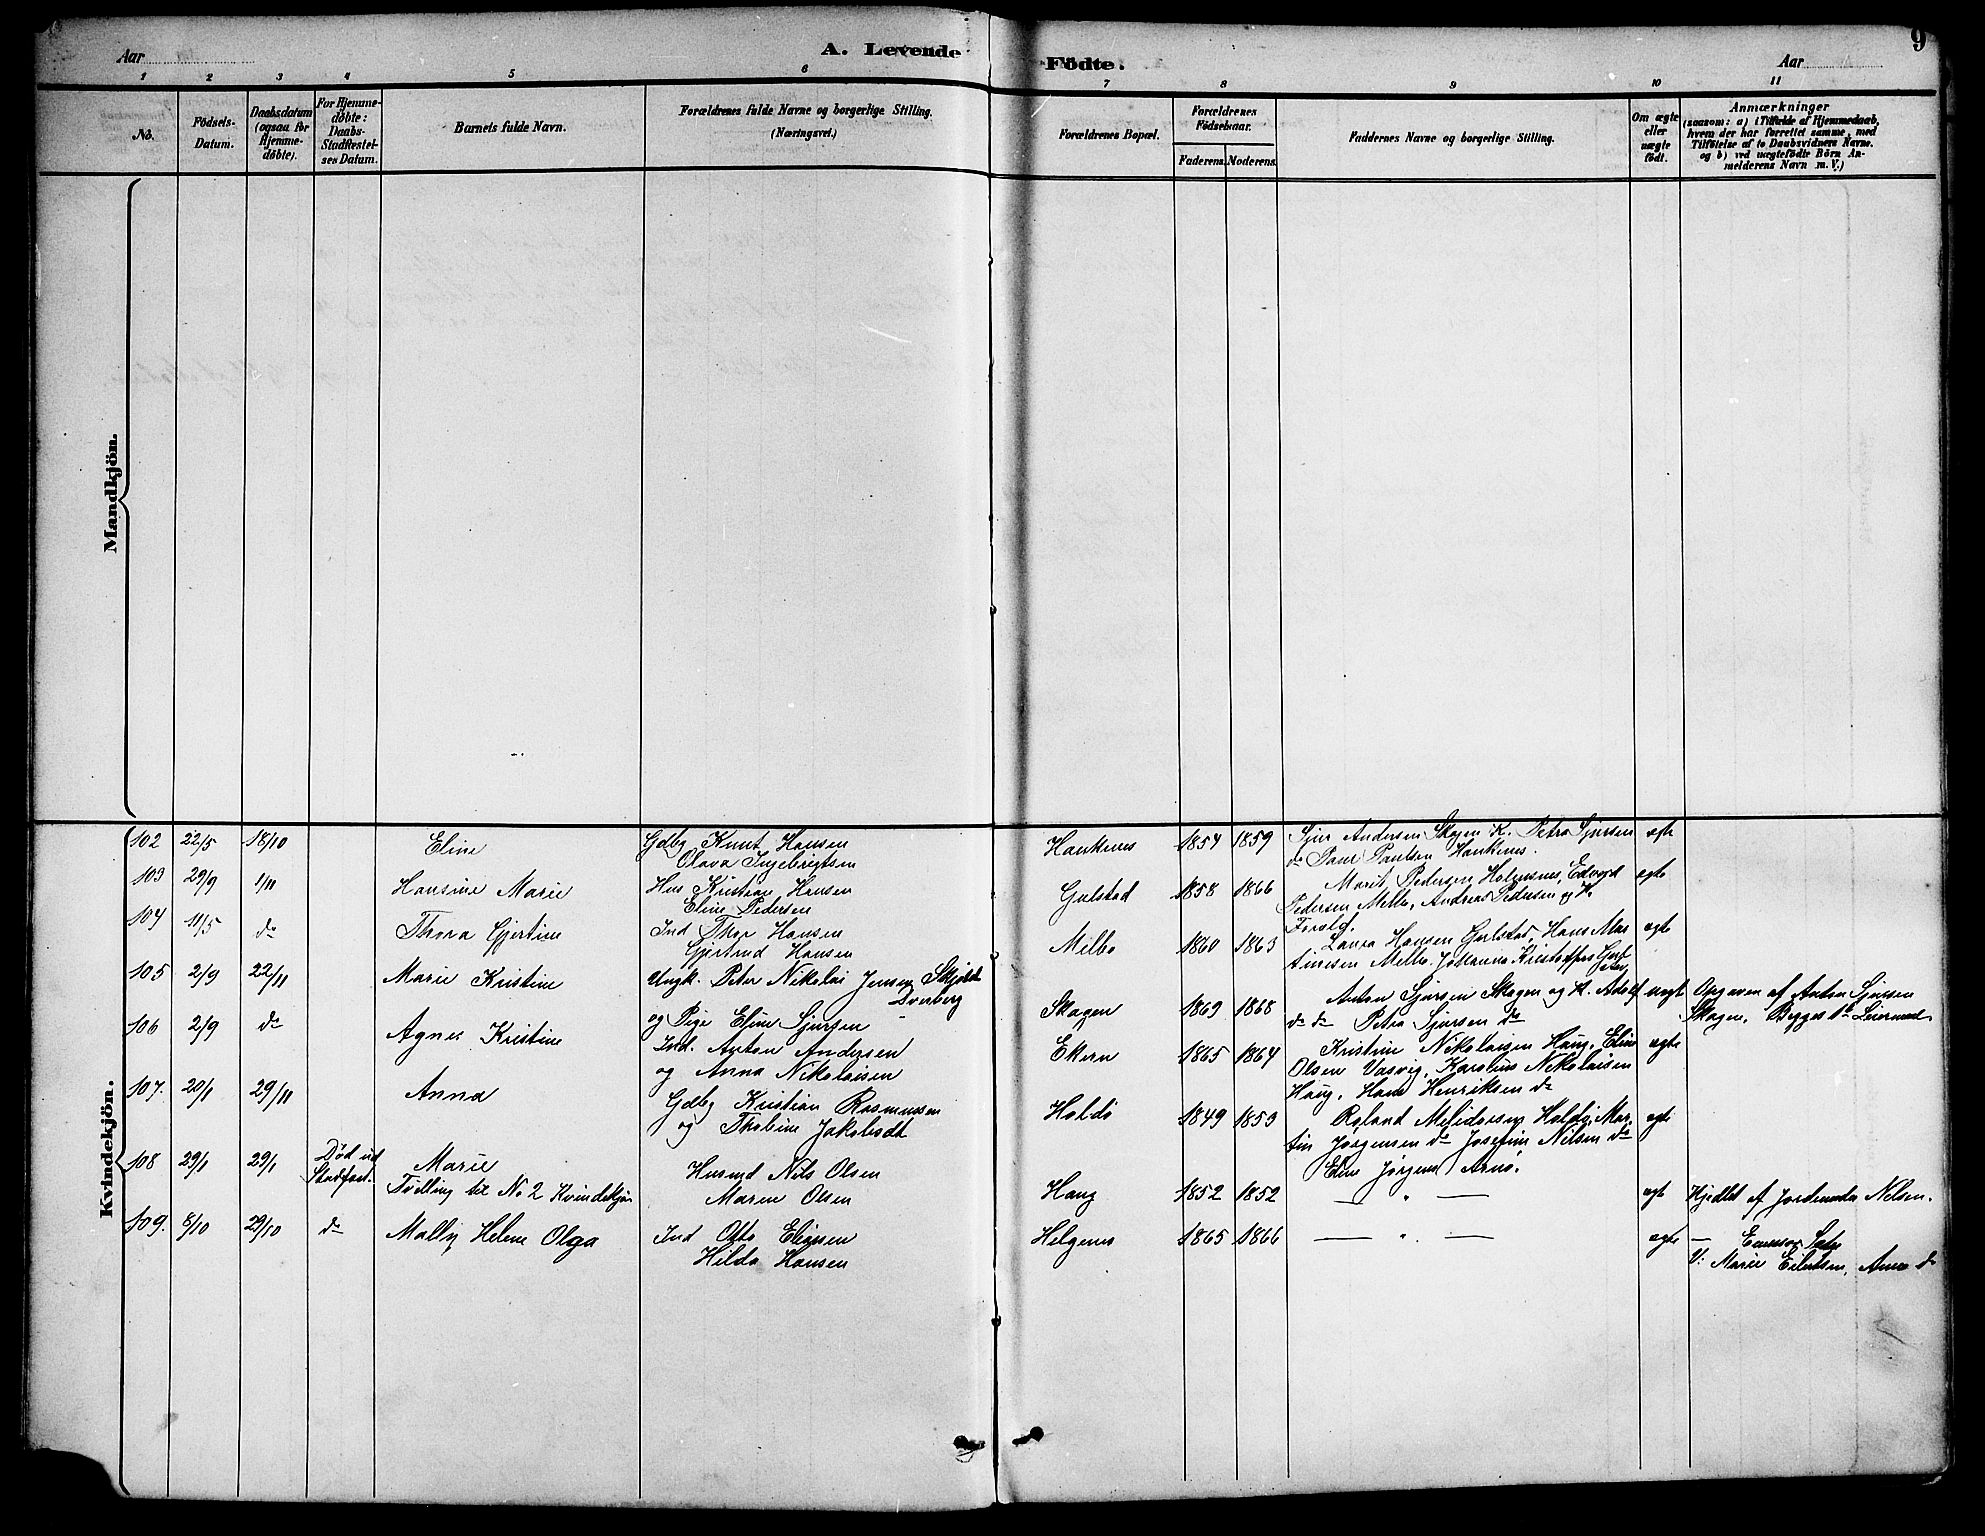 9
Aar
A. Levende
Födte.
Aar
1 2 3 4 5 6 7 8 9 10 11
No.
Födsels-
Datum.
Daabsdatum
(ogsaa for
Hjemme-
døbte).
For Hjemme-
döbte:
Daabs-
Stadfæstel-
ses Datum.
Barnets fulde Navn.
Forældrenes fulde Navne og borgerlige Stilling.
(Næringsvei.)
Forældrenes Bopæl.
Forældrenes
Födselsaar.
Faderens. Moderens.
Faddernes Navne og borgerlige Stilling.
Om ægte
eller
uægte
födt.
Anmærkninger
(saasom: a) i Tilfælde af Hjemmedaab,
hvem der har forrettet samme, med
Tilföielse af to Daabsvidners Navne.
og b) ved uægtefödte Börn An-
melderens Navn m. V.)
Mandkjön.
Kvindekjön.
102 22/5 18/10 Eline
Gdbg Knut Hansen
Olava Ingebrigtsen
Hankenes 1854 1859
Sjur Andersen Skagen K. Petra Sjursen
do Paul Paulsen Hankenes.
egte
103 29/9 1/11 Hansine Marie
Hus Kristian Hansen
Eline Pedersen
Gulstad 1858 1866
Marit Pedersen Holmsnes, Edvard
Pedersen Melbo, Andreas Pedersen og K.
egte
104 11/5 do Thora Gjertine
Ind Thor Hansen
Gjertrud Hansen
Melbo 1860 1863
Laura Hansen Gulstad, Hans Mar
tinesen Melbo. Johanna Kristoffers
egte
105 2/9 22/11 Marie Kristine
Ungk. Peter Nikolai Jensen
og Pige Eline Sjursen
Skagen 1869 1868
Anton Sjursen Skagen og K. Adolf
do do Petra Sjursen do
uegt
Opgaven af Anton Sjursen
Skagen.
106 2/9 do Agnes Kristine
Ind. Anton Andersen
og Anna Nikolaisen
Ekern 1865 1864
Kristine Nikolaisen Haug, Eline
Olsen Vasvig, Karolius Nikolaisen
Haug, Hans Henriksen do
egte
107. 20/1 29/11 Anna
Gdbg Kristian Rasmussen
og Thobine Jakobsdt
Holdö 1849 1853
Roland Melidorsen Holdö, Mar
tin Jørgensen do Josefine Nilsen do
Eline Jørgens Arnö.
egte
108 29/1 29/1 Død ud
Stadfæst.
Marie
Tvilling til No 2 Kvindekjön
Husmd Nils Olsen
Maren Olsen
Haug 1852 1852 — " —
egt
Hjedbt af Jordemoder Nilsen.
109. 8/10 29/10 do Mally Helene Olga
Ind Otto Eliesen
Hilda Hansen
Helgenes 1865 1866 — " —
egte
V: Marie Eilertsen, Anna do